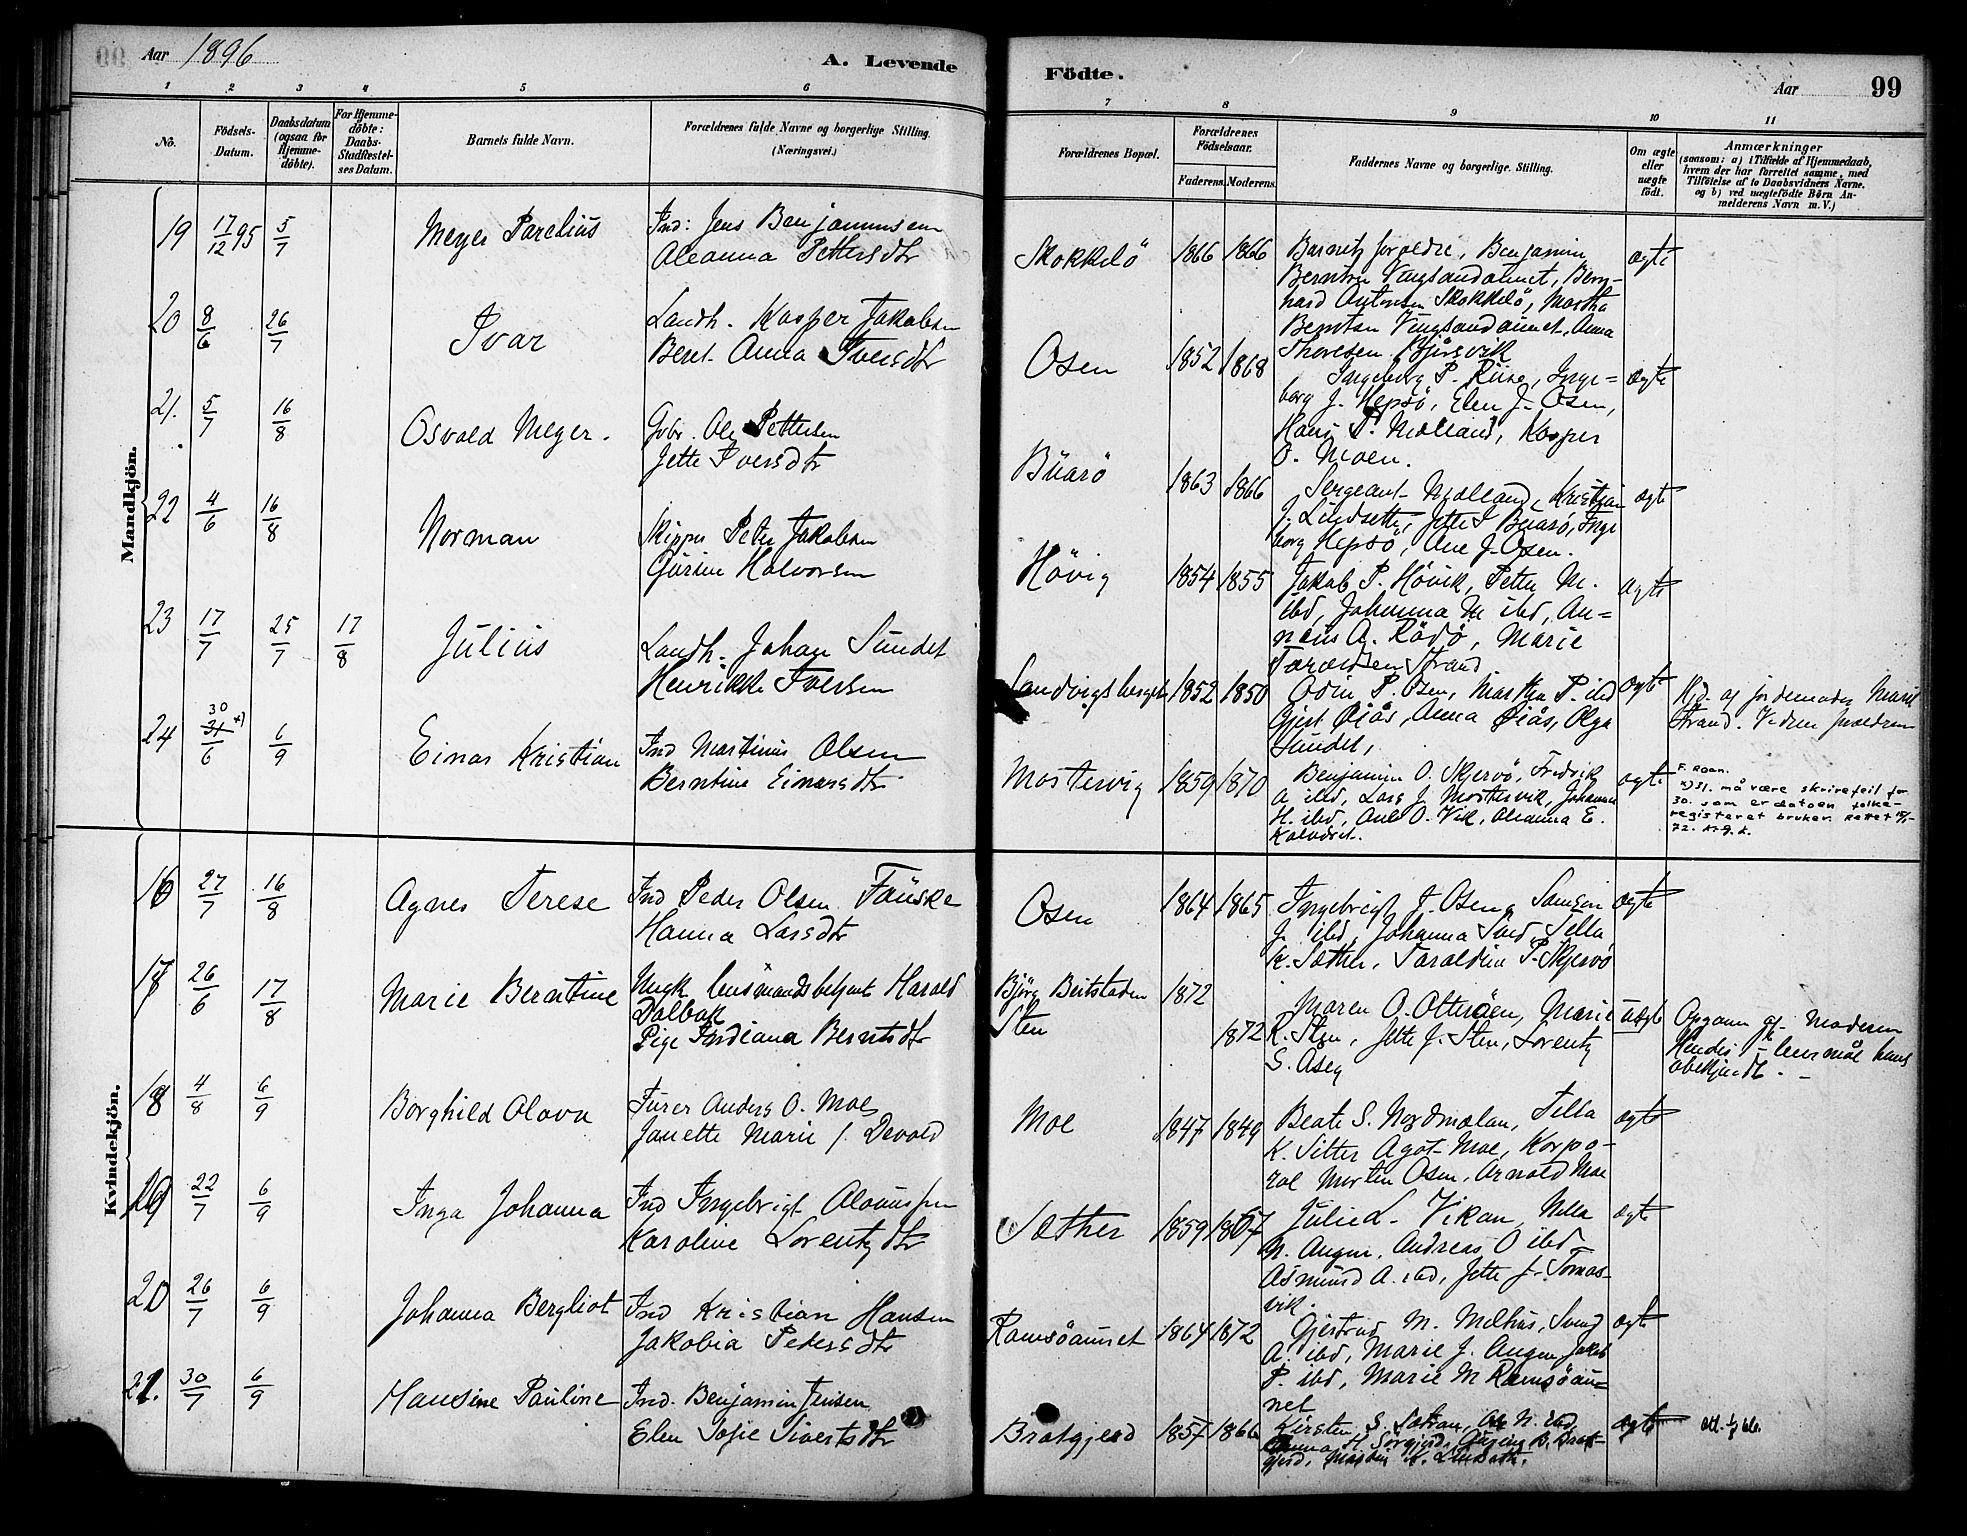 Aar 1896
A. Levende
Födte.
Aar
99
1 2 3 4 5 6 7 8 9 10 11
No.
Födsels-
Datum.
Daabsdatum
(ogsaa för
Hjemme-
döbte).
For Hjemme-
döbte:
Daabs-
Stadfæstel-
ses Datum.
Barnets fulde Navn.
Forældrenes fulde Navne og borgerlige Stilling.
(Næringsvei.)
Forældrenes Bopæl.
Forældrenes
Födselsaar.
Faderens. Moderens.
Faddernes Navne og borgerlige Stilling.
Om ægte
eller
uægte
födt.
Anmærkninger
(saasom: a) i Tilfælde af Hjemmedaab,
hvem der har forrettet samme, med
Tilföielse af to Daabsvidners Navne,
og b) ved uægtefödte Börn An-
melderens Navn m. V.)
Mandkjön.
19 17/12 95 5/7 Meyer Parelius Ind: Jens Benjaminsen
Aleanna Pettersdtr
Skokkelö 1866 1866 Barnets foreldre, Benjamin
Berntsen Vingsandaunet, Bern-
hard Antonsen Skokkelö, Martha
Berntsen Vingsandaunet, Anna
Thoresen
ægte
20 8/6 26/7 Ivar Landh. Kasper Jakobsen
Beret Anna Iversdtr
Osen 1852 1868 Ingeborg P. Riise, Inge-
borg J. Hepsö, Elen J. Osen,
Hans P. Mælland, Kasper
O. Moen.
ægte
21. 5/7 16/8 Osvald Meyer. Gbr. Ole Pettersen
Jette Iversdtr
Buarö 1863 1866 Sergeant Mælland, Kristian
J. Lindseth, Jette I Buarö, Inge
borg Hepsö, Ane J. Osen.
ægte
22 4/6 16/8 Norman Skipper Peter Jakobsen
Gurine Halvorsen
Hövig 1854 1855 Jakob P. Hövik, Petter M.
ibd, Johanna M ibd, An-
næus A. Rödö, Marie
Strand
ægte
23 17/7 25/7 17/8 Julius Landh. Johan Sundet
Henrikke Iversen
Sandvigsberget 1852 1850 Odin P. Osen, Martha P. ibd
Gjert Öiås, Anna Öiås, Olga
Sundet,
ægte
Hjd. af jordemoder Marie
Strand. Vidner foreldrene
24 30 31 x)/6 6/9 Einar Kristian Ind Martinus Olsen
Berntine Einarsdtr
Mostervig 1859 1870 Benjamin O. Skjervö, Fredrik
A ibd, Lars J. Mostervik, Johanna
H. ibd, Ane O. Vik, Oleanna E.
ægte
F. Roan.
x) 31. må være skrivefeil for
30. som er datoen folke-
registeret bruker. Rettet
72.
Kvindekjön.
16 27/7 16/8 Agnes Terese Ind Peder Olsen Fauske
Hanna Larsdtr
Osen 1864 1865 Ingebrigt J. Osen, Samson
J. ibd, Johanna Sund, Tilla
K. Sæther, Taraldine P. Skjervö
ægte
17 26/6 17/8 Marie Berntine Ungk lensmandsbetjent Harald
Dalbak
Pige Indiana Berntsdtr
Björg Beitstaden
Sten
1872
1872
Maren O. Otteröen, Marie
R. Sten, Jette J. Sten, Lorentz
S. Aseg
uægte
Opgaven af Moderen
Hendes 1 leiermål hans
ubekjendt. -
18 4/8 6/9 Borghild Olava Furer Anders O. Moe
Janette Marie f. Devold
Moe 1847 1849 Beate S. Nordmælan, Tilla
K. Sitter Agot Moe, Korpo-
ral Morten Osen, Arnold Moe
ægte
19 22/7 6/9 Inga Johanna Ind Ingebrigt Olaussen
Karoline Lorentzdtr
Sæther 1859 1867 Julie L. Vikan, Nilla
N. Angen, Andreas O ibd
Asmund A. ibd, Jette J. Tomas-
vik.
ægte
20 26/7 6/9 Johanna Bergliot Ind Kristian Hansen
Jakobia Pedersdtr
Ramsöaunet 1864 1872 Gjertrud M. Melhus, Svend
A. ibd, Marie J. Angen, Jakob
P. ibd, Marie M Ramsöau-
net
ægte
21. 30/7 6/9 Hansine Pauline Ind. Benjamin Jensen
Elen Sofie Sivertsdtr
Bratgjerd 1857 1866 Kirsten S. Sætran, Ole N. ibd,
Anna H. Sörgjerd, Gurine B. Brat-
gjerd,
ægte